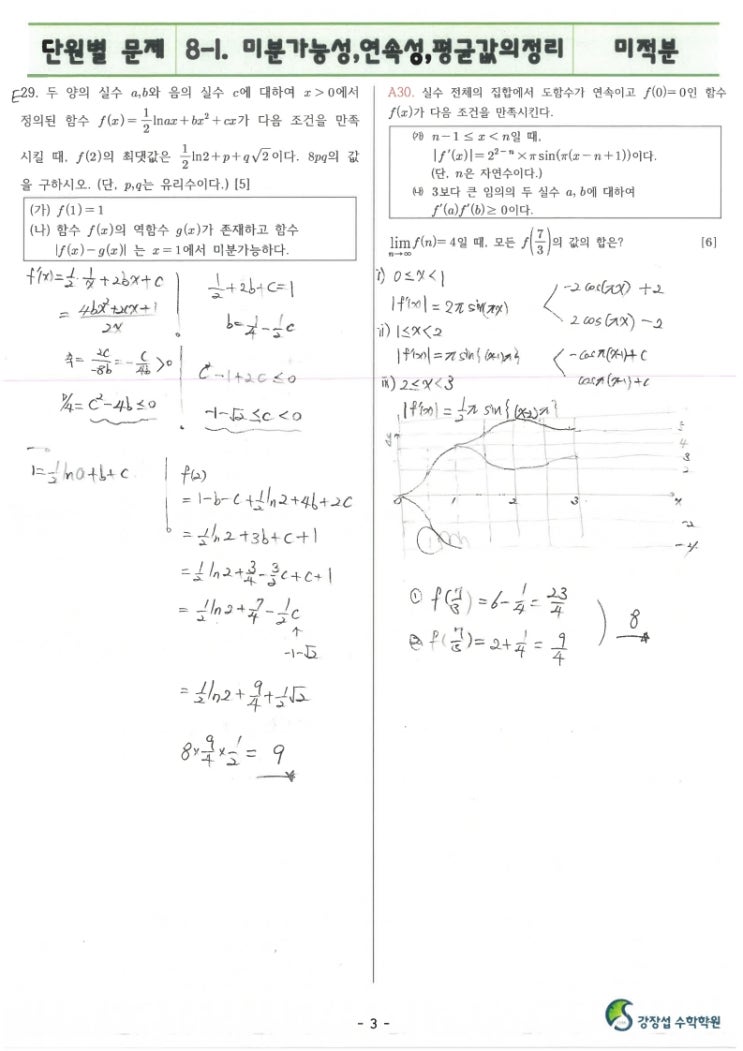 단원별 문제 8-1. 미분가능성,연속성,평균값의정리 미적분
E29. 두 양의 실수 a,b와 음의 실수 c에 대하여 x>0에서
정의된 함수 f(x)=1/2 lnax+bx²+cx가 다음 조건을 만족
시킬 때, f(2)의 최댓값은 1/2 ln2+p+q√2이다. 8pq의 값
을 구하시오. (단, p,q는 유리수이다.) [5]
(가) f(1)=1
(나) 함수 f(x)의 역함수 g(x)가 존재하고 함수
|f(x)-g(x)| 는 x=1에서 미분가능하다.
f'(x)=1/2·1/x+2bx+c
=(4bx²+2cx+1)/2x
축=2c/-8b=-c/4b>0
D/4=c²-4b≤0
1/2+2b+c=1
b=1/4-1/2c
c²-1+2c≤0
-1-√2≤c<0
1=1/2 ln a+b+c
f(2)
=1-b-c+1/2 ln2+4b+2c
=1/2 ln2+3b+c+1
=1/2 ln2+3/4-3/2c+c+1
=1/2 ln2+7/4-1/2c
↑
-1-√2
=1/2 ln2+9/4+1/2√2
8×9/4×1/2=9
A30. 실수 전체의 집합에서 도함수가 연속이고 f(0)=0인 함수
f(x)가 다음 조건을 만족시킨다.
㈎ n-1≤x<n일 때,
|f'(x)|=2^(2-n)×πsin(π(x-n+1))이다.
(단, n은 자연수이다.)
㈏ 3보다 큰 임의의 두 실수 a, b에 대하여
f'(a)f'(b)≥0이다.
lim n→∞ f(n)=4일 때, 모든 f(7/3)의 값의 합은? [6]
i) 0≤x<1
|f'(x)|=2π sin(πx)
-2cos(πx)+2
2cos(πx)-2
ii) 1≤x<2
|f'(x)|=π sin{(x-1)π}
-cosπ(x-1)+c
cosπ(x-1)+c
iii) 2≤x<3
|f'(x)|=1/2π sin{(x-2)π}
y
5
4
3
2
0 1 2 3 x
-2
-4
① f(7/3)=6-1/4=23/4
② f(7/3)=2+1/4=9/4
8
- 3 -
강장섭 수학학원